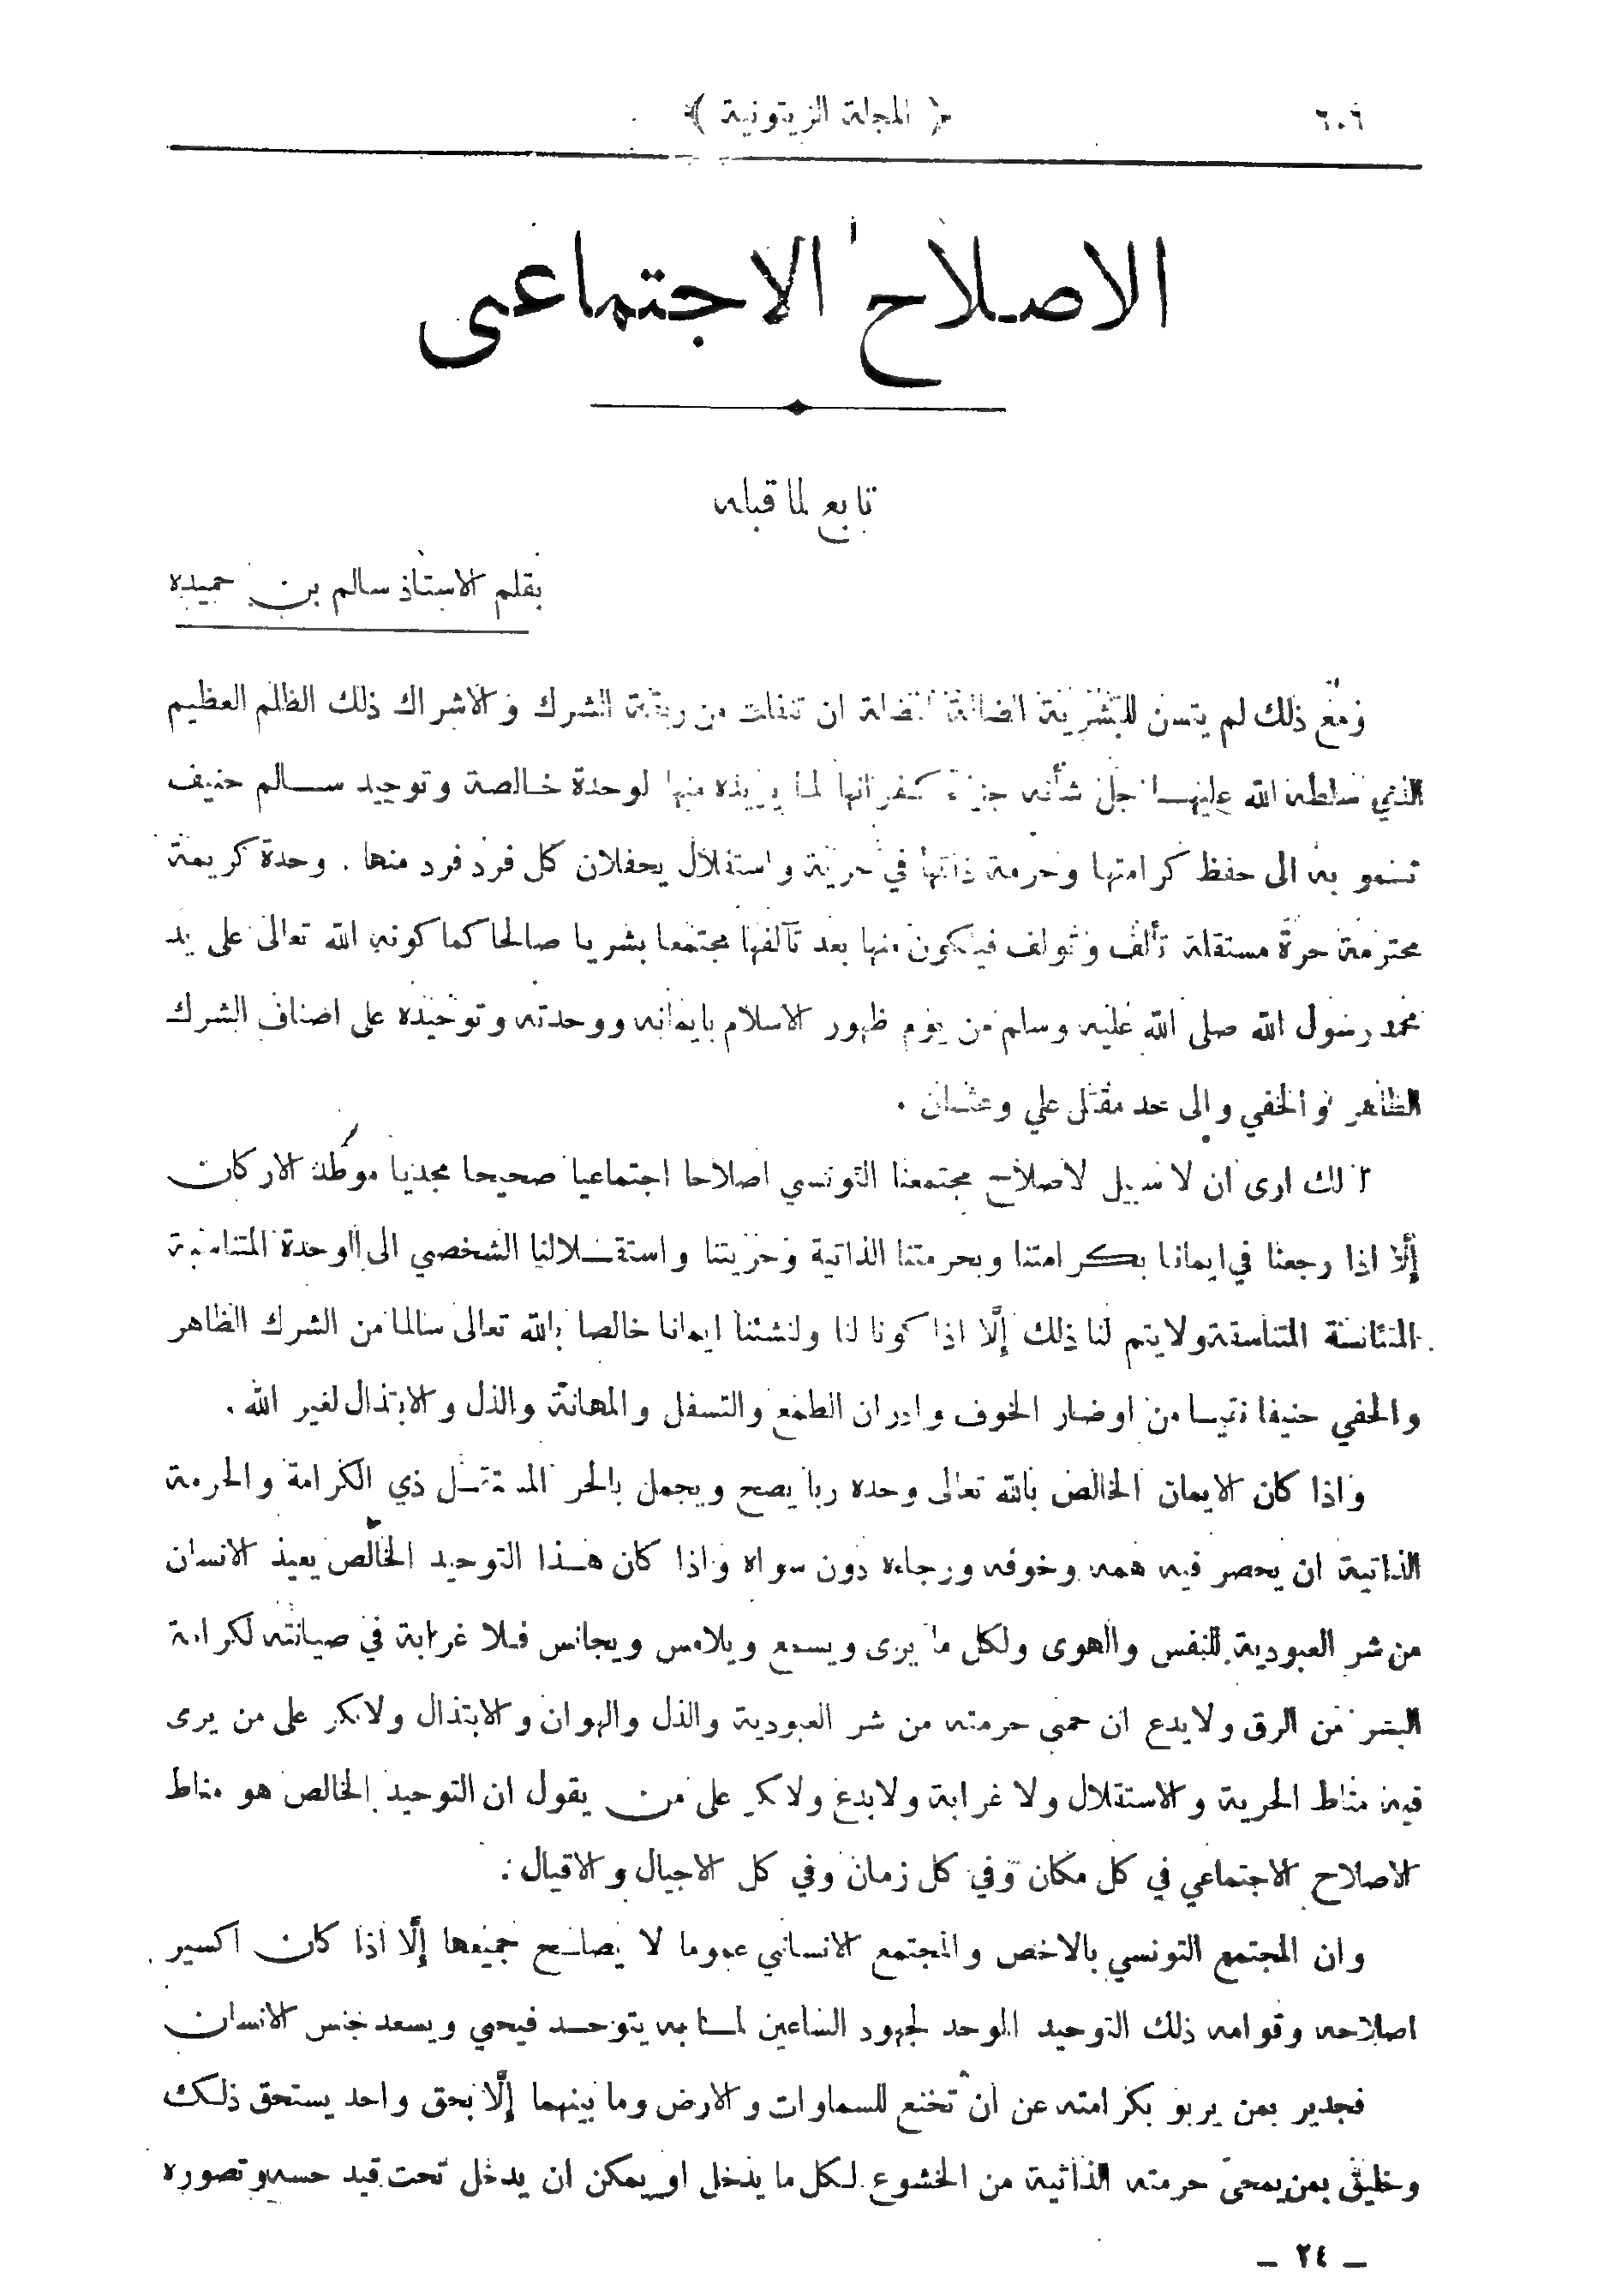 ٦٠٦
﴿ المجلة الزيتونية ﴾
الاصلاح الاجتماعي
تابع لما قبله
بقلم الاستاذ سالم بن حميده
ومع ذلك لم يتسن للبشرية الضالة المضلة ان تنفلت من ربقة الشرك والاشراك ذلك الظلم العظيم
الذي سلطه الله عليهـا جل شأنه جزاء كفرانها لما يريده منها لوحدة خالصة وتوحيد ســالم حنيف
تسمو به الى حفظ كرامتها وحرمة ذاتها في حرية واستقلال يحفلان كل فرد فرد منها . وحدة كريمة
محترمة حرة مستقلة تألف وتولف فيتكون منها بعد تآلفها مجتمعا بشريا صالحا كما كونه الله تعالى على يد
محمد رسول الله صلى الله عليه وسلم من يوم ظهور الاسلام بايمانه ووحدته وتوحيده على اصناف الشرك
الظاهر والخفي والى حد مقتل علي وعثمان .
لذلك ارى ان لا سبيل لاصلاح مجتمعنا التونسي اصلاحا اجتماعيا صحيحا مجديا موطد الاركان
إلّا اذا رجعنا في ايماننا بكرامتنا وبحرمتنا الذاتية وحريتنا واستقــلالنا الشخصي الى الوحدة
المتئانسة المتناسقة ولا يتم لنا ذلك إلّا اذا كونا لنا ولنشئنا ايمانا خالصا بالله تعالى سالما من الشرك الظاهر
والخفي حنيفا نقيـا من اوضار الخوف وادران الطمع والتسفل والمهانة والذل والابتذال لغير الله .
واذا كان الايمان الخالص بالله تعالى وحده ربا يصح ويجمل بالحر المستقــل ذي الكرامة والحرمة
الذاتية ان يحصر فيه همه وخوفه ورجاءه دون سواه واذا كان هــذا التوحيد الخالص يعيذ الانسان
من شر العبودية للنفس والهوى ولكل ما يرى ويسمع ويلامس ويجانس فـلا غرابة في صيانته لكرامة
البشر من الرق ولا بدع ان حمى حرمته من شر العبودية والذل والهوان والابتذال ولا نكر على من يرى
فيه مناط الحرية والاستقلال ولا غرابة ولا بدع ولا نكر على من يقول ان التوحيد الخالص هو مناط
الاصلاح الاجتماعي في كل مكان وفي كل زمان وفي كل الاجيال والاقيال .
وان المجتمع التونسي بالاخص والمجتمع الانساني عموما لا يصلــح جميعها إلّا اذا كان اكسير
اصلاحه وقوامه ذلك التوحيد الموحد لجهود الساعين لمــا به يتوحــد فيحمي ويسعد جنس الانسان
فجدير بمن يربو بكرامته عن ان تخنع للسماوات والارض وما بينهما إلّا بحق واحد يستحق ذلـك
وخليق بمن يمحى حرمته الذاتية من الخشوع لـكل ما يدخل او يمكن ان يدخل تحت قيد حسه وتصوره
– ٢٤ –